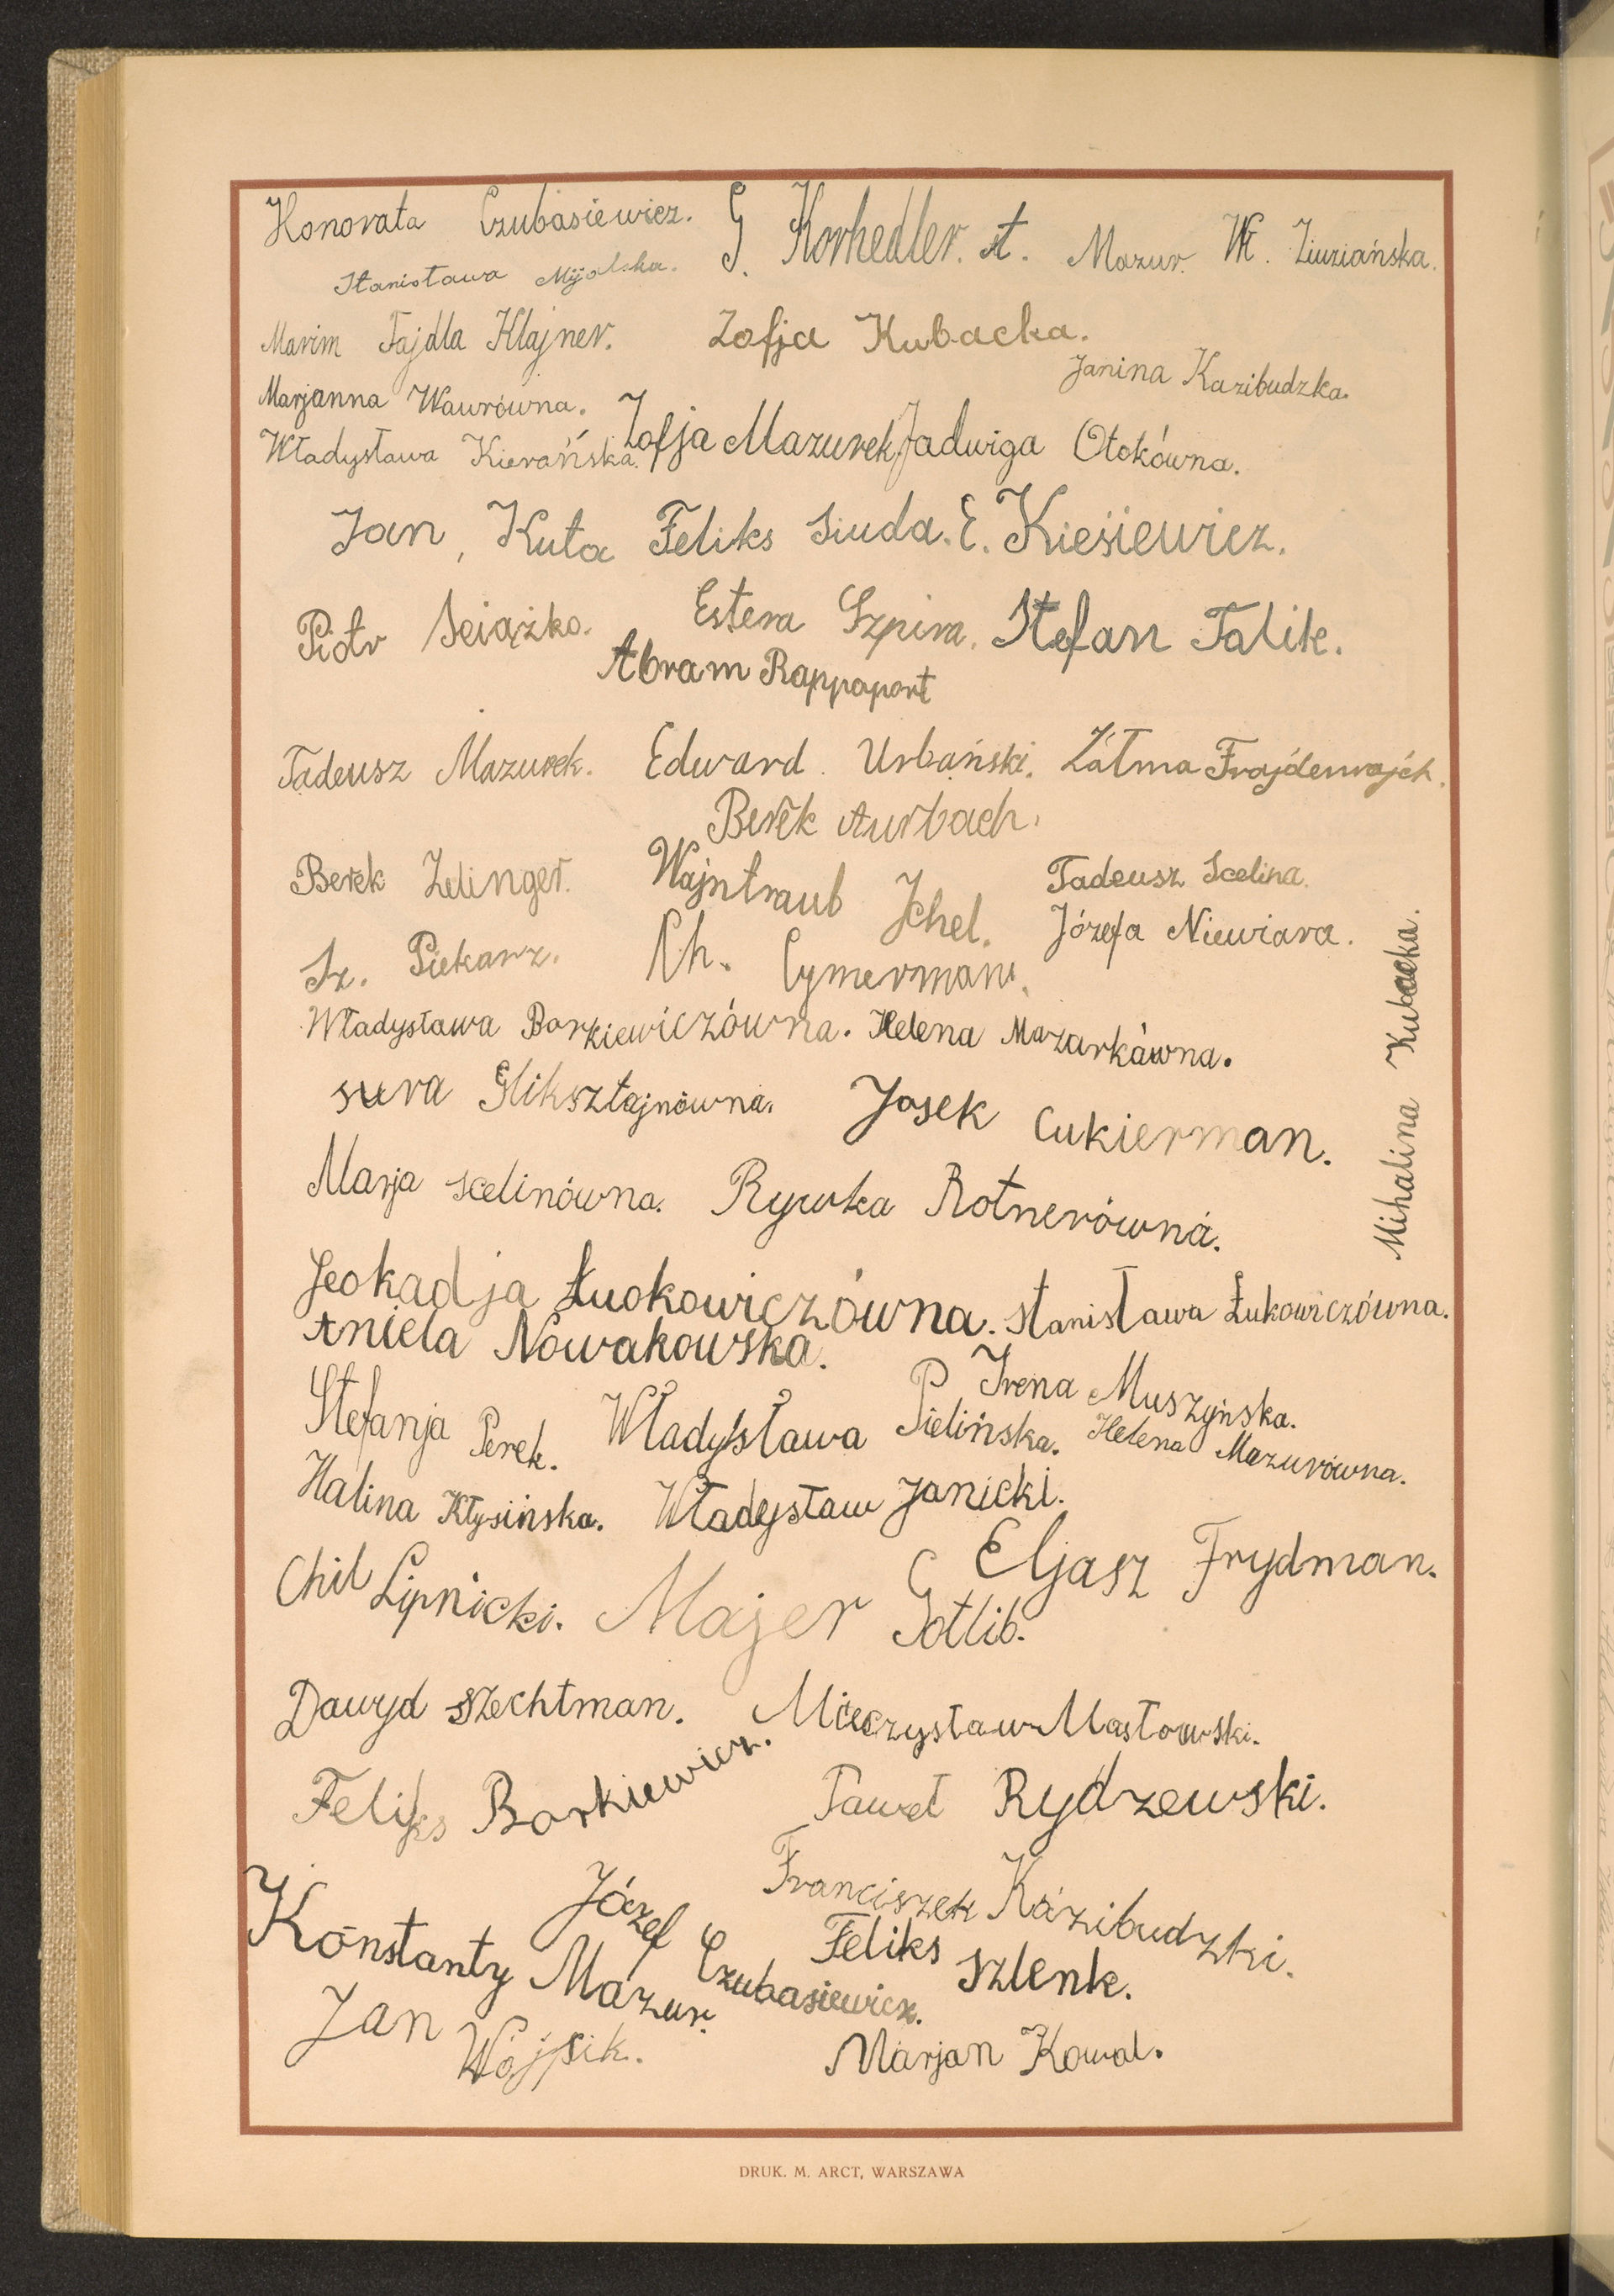 Honorata Czubasiewicz. G. Korhedler. A. Mazur. Wł. Ziuziańska.
Stanisława Mijalska.
Marim Fajdla Klajner. Zofja Kubacka.
Janina Kazibudzka.
Marjanna Wawrówna.
Władysława Kierańska. Zofja Mazurek Jadwiga Otokówna.
Jan, Kuta Feliks Siuda. E. Kiesiewicz.
Piotr Sciążko. Estera Szpira. Stefan Talik.
Abram Rappaport
Tadeusz Mazurek. Edward Urbański. Załma Frajdenrajch.
Berek Aurbach.
Berek Zelinger. Wajntraub Ichel. Tadeusz Scelina.
Józefa Niewiara.
Sz. Piekarz. Ch. Cymerman.
Władysława Borkiewiczówna. Helena Mazarkówna.
Mihalina Kubacka.
sura Gliksztajnówna. Josek Cukierman.
Marja scelinówna. Rywka Rotnerówna.
Leokadja Łuokowiczówna. Stanisława Łukowiczówna.
Aniela Nowakowska.
Irena Muszyńska.
Stefanja Perek. Władysława Pielińska. Helena Mazurówna.
Halina Kłysińska. Władysław Janicki.
Chil Lipnicki. Majer Gotlib. Eljasz Frydman.
Dawyd szechtman. Mieczysław Masłowski.
Feliks Borkiewicz. Paweł Rydzewski.
Franciszek Kazibudzki.
Konstanty Mazur. Józef Czubasiewicz. Feliks Szlenk.
Jan Wójsik. Marjan Kowal.
DRUK. M. ARCT, WARSZAWA